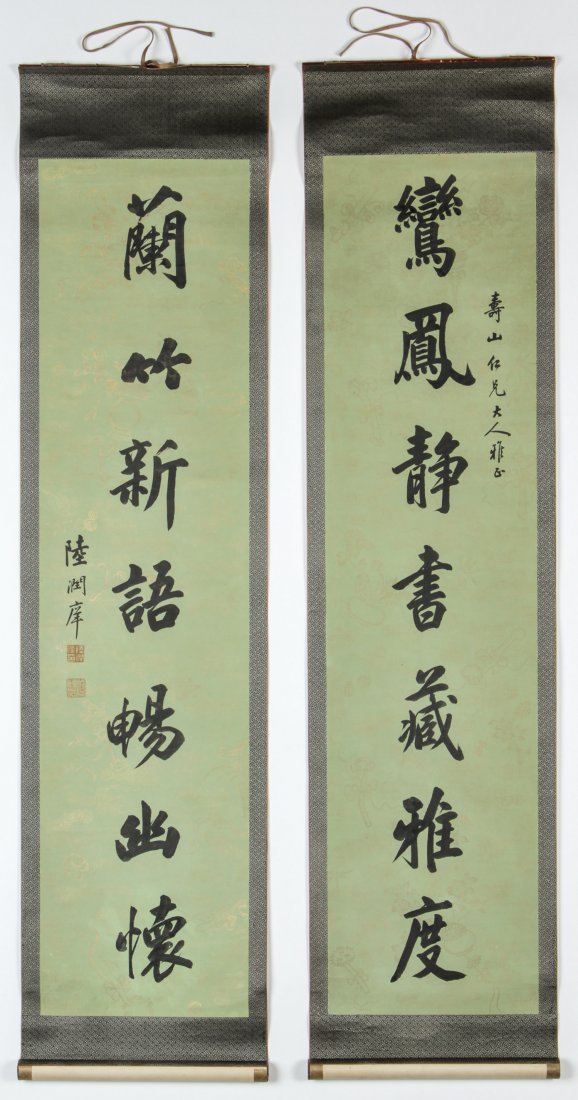 壽山仁兄大人雅正
鸞鳳静書藏雅度
蘭竹新語暢幽懷
陸潤庠